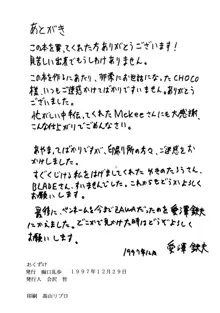 あとがき
この本を買ってくれた方ありがとうございます!
貧乏い出来でもうしわけありません。
この本を作るにあたり、非常にお世話になったCHOCO
様、いつもご迷惑かけてばかりですいません。ありがとう
ございました。
忙がしい中手伝ってくれたMckeeさんにも大感謝。
こんな仕上がりでごめんなさい。
あやまってばかりですが、印刷所の方々、ご迷惑をお
かけしました。
すぐくじける私をはげましてくれた やきのたろうさん、
BLADEさん、すいませんでした。これからもどうかよろしく
お願いします。
最後に、ペンネームを今までAWAだったのを愛澤鉄矢
にかえました。どこかで見かけた時はどうぞよろしく
お願いします。
1997年12月 愛澤 鉄矢
おくずけ
発行 1997年12月29日
発行人 会沢 哲
印刷 高山リプロ